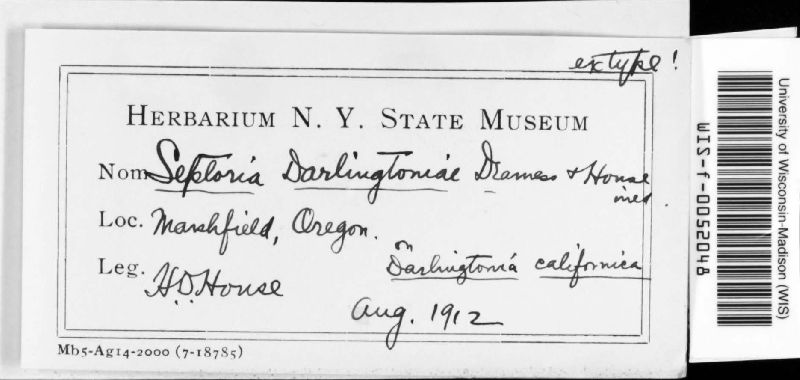 ex type!
HERBARIUM N. Y. STATE MUSEUM
Nom Septoria Darlingtoniae Dearness & House
ined.
Loc. Marshfield, Oregon.
on
Leg. H.D. House
Darlingtonia californica
Aug. 1912
Mb5-Ag14-2000 (7-18785)
University of Wisconsin-Madison (WIS)
WIS-f-0052048